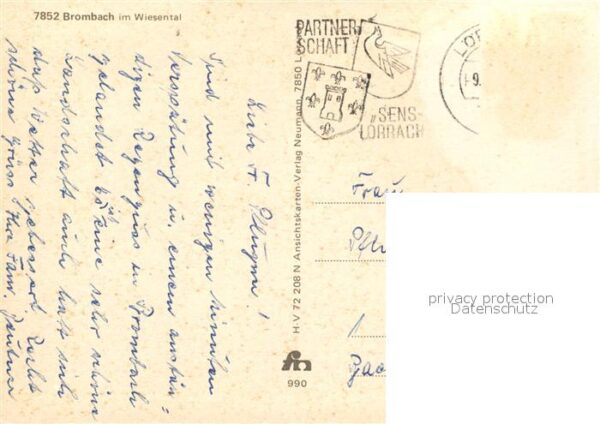 7852 Brombach im Wiesental
PARTNER
SCHAFT
„SENS-
LÖRRACH
LÖR
-9.
Liebe Fr.
Sind mit wenigen Minuten
Verspätung in einem anstän=
digen Regenguss in Brombach
gelandet. Es ist eine sehr schöne
Landschaft auch hat sich
das Wetter gebessert. Recht
schöne Grüsse Ihre Fam.
H-V 72 208 N Ansichtskarten-Verlag Neumann, 7850 Lö
Frau
1
fn
990
privacy protection
Datenschutz